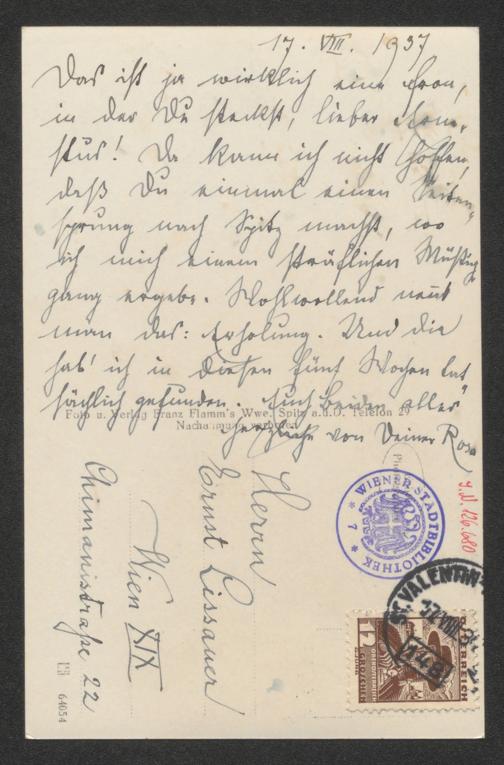 17. VIII. 1937
Das ist ja wirklich eine Fron,
in der Du steckst, lieber
stus! Da kann ich nicht hoffen,
daß Du einmal einen Seiten-
sprung nach Spitz machst, wo
ich mich einem sträflichen Müßig-
gang ergebe. Wohlwollend nennt
man das: Erholung. Und die
hab' ich in diesen fünf Wochen tat-
sächlich gefunden. Euch beiden alles
Herzliche von Deiner Rosa
Foto u. Verlag Franz Flamm's Wwe. Spitz a.d.D. Telefon 29
Nachahmung verboten
Herrn
Ernst Lissauer
Wien XIX
Chimanistraße 22
64054
WIENER STADTBIBLIOTHEK
7
J.N. 126.680
ST. VALENTIN
148
ÖSTERREICH
12
GROSCHEN
OBERÖSTERREICH